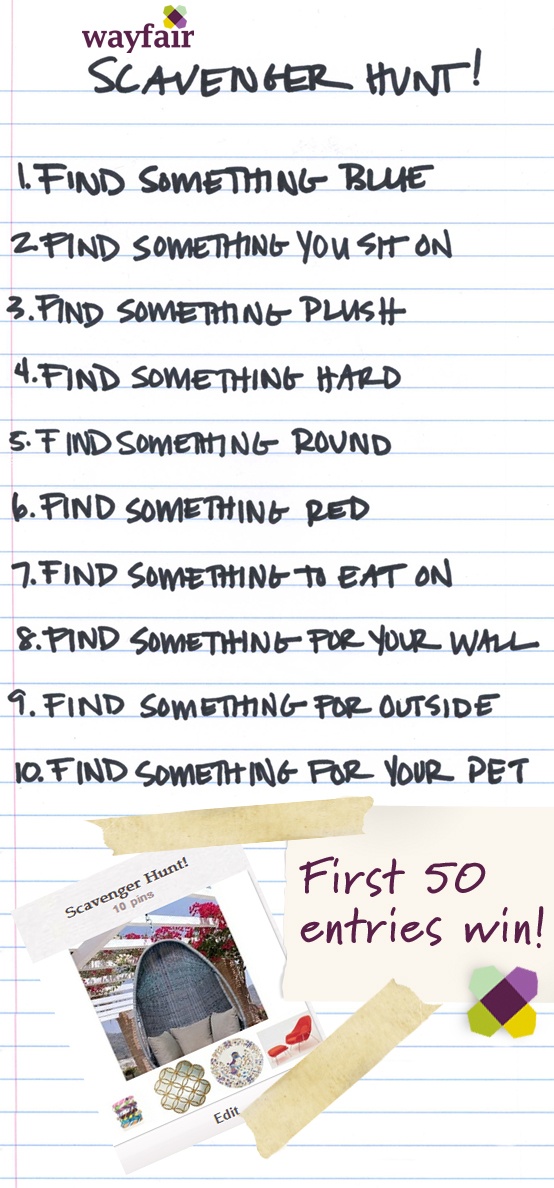 wayfair
SCAVENGER HUNT!
1. FIND SOMETHING BLUE
2. FIND SOMETHING YOU SIT ON
3. FIND SOMETHING PLUSH
4. FIND SOMETHING HARD
5. FIND SOMETHING ROUND
6. FIND SOMETHING RED
7. FIND SOMETHING TO EAT ON
8. FIND SOMETHING FOR YOUR WALL
9. FIND SOMETHING FOR OUTSIDE
10. FIND SOMETHING FOR YOUR PET
First 50
entries win!
Scavenger Hunt!
10 pins
Edit